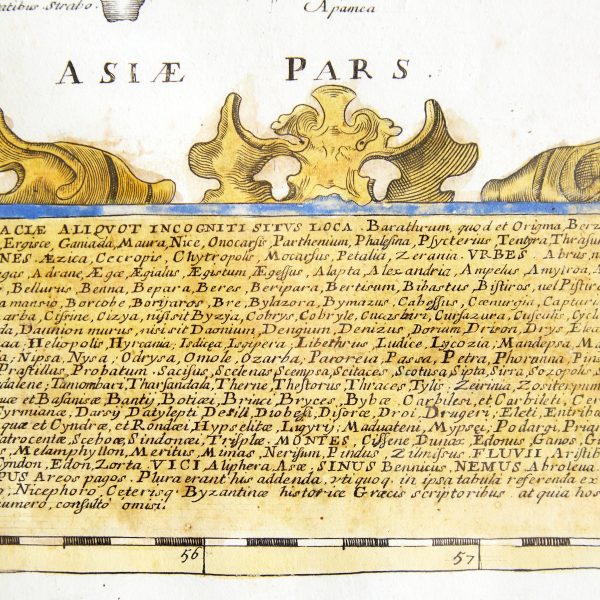 atibus Strabo.
Apamea
ASIÆ PARS.
ACIÆ ALIQVOT INCOGNITI SITVS LOCA. Barathrum, quod et Origma, Berz
Ergisce, Ganiada, Maura, Nice, Onocarsis Parthenium, Phalesina, Psycterius Tentyra, Thrasum
NES Æzica, Cecropis, Chytropolis Mocarsus, Petalia, Zerania. VRBES. Abrus, n
gas, Adrane, Ægæ, Ægialus, Ægistum, Ægessus, Alapta, Alexandria, Ampelus, Amylroa, A
, Bellurus, Benna, Bepara, Beres, Beripara, Bertisum, Bibastus, Bistiros, vel Pistir
a mansio, Borcobe, Borijaros, Bre, Bylazora, Bymazus, Cabessus, Cænurgia, Capturi
arba, Cissine, Cizya, nisi sit Byzja, Cobrys, Cobryle, Cucasbiri, Cursazura, Cusculis, Cycl
da, Daunion murus, nisi sit Daonium, Dengium, Denizus, Dorium, Drison, Drys, Elea
Heliopolis Hyrcania, Isdicea, Isgipera; Libethrus Ludice, Lycozia, Mandepsa, Ma
a, Nipsa, Nysa, Odrysa, Omole, Ozarba; Paroreia, Passa, Petra, Phorunna, Pins
Prastillus, Probatum. Sacissus, Scelenas, Scempsa, Scitaces, Scotusa, Sipta, Sirra, Sozopolis S
dalene; Tamombari, Tharsandala, Therne, Thestorus, Thraces, Tylis. Zeirinia, Zositerpum
uæ et Basanisæ Bantij, Botiæi, Brinci Bryces, Bybæ, Carbilesi, et Carbileti, Cer
Tyrmianæ, Darsij, Datylepti Desili, Diobesi, Disoræ, Droi, Drugeri; Eleti, Entriba
quæ et Cyndræ, et Rondæi, Hypselitæ, Ligyrij; Maduateni, Mypsei, Podargi, Prian
atrocentæ, Sceboæ, Sindonæi, Trisplæ. MONTES, Cissene, Dunax, Edonus, Ganos, G
s, Melamphyllon, Meritus, Mimas, Nerisum, Pindus, Zilmissus. FLUVII, Aristib
Cyndon, Edon, Zorta, VICI Aliphera, Asæ, SINUS Bennicus, NEMUS Abroleva
PUS Areos pagos. Plura erant his addenda, vti quoq. in ipsa tabula referenda ex
o, Nicephoro, Ceterisq. Byzantinæ historiæ Græcis scriptoribus at quia hos
numero, consulto omisi.
56
57